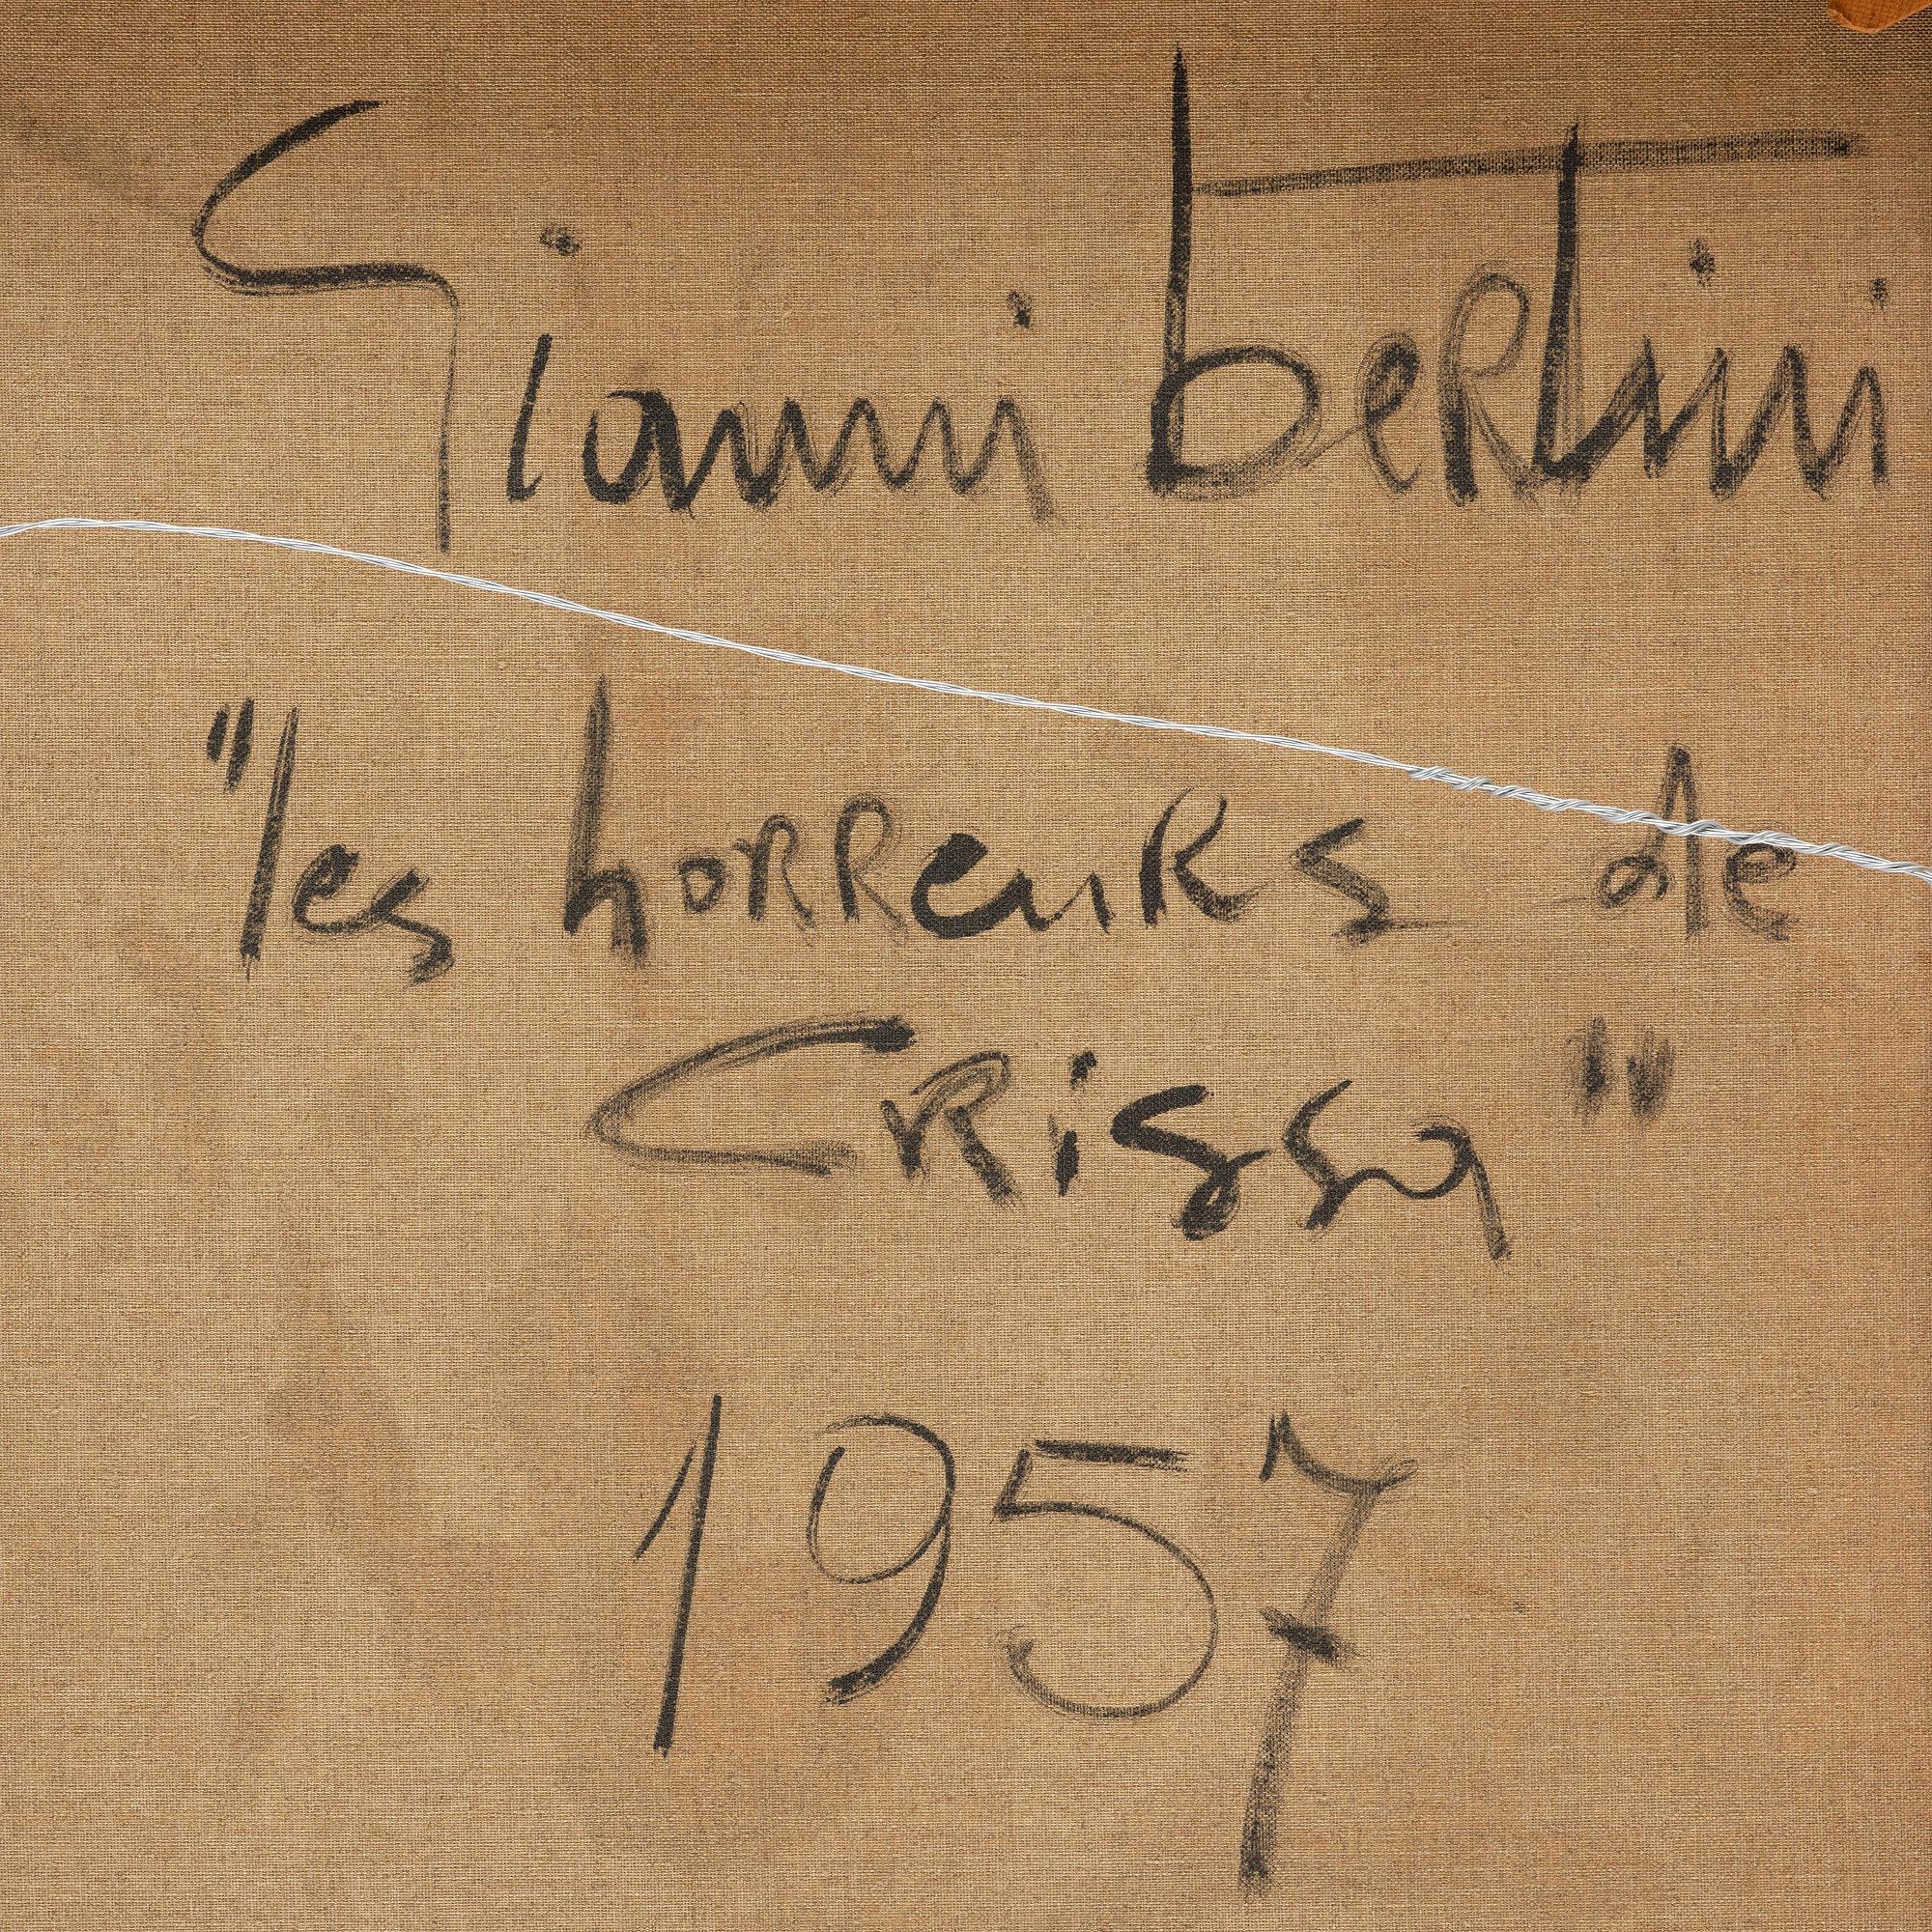 Gianni Bertini
"les horreurs de
Crissa"
1957